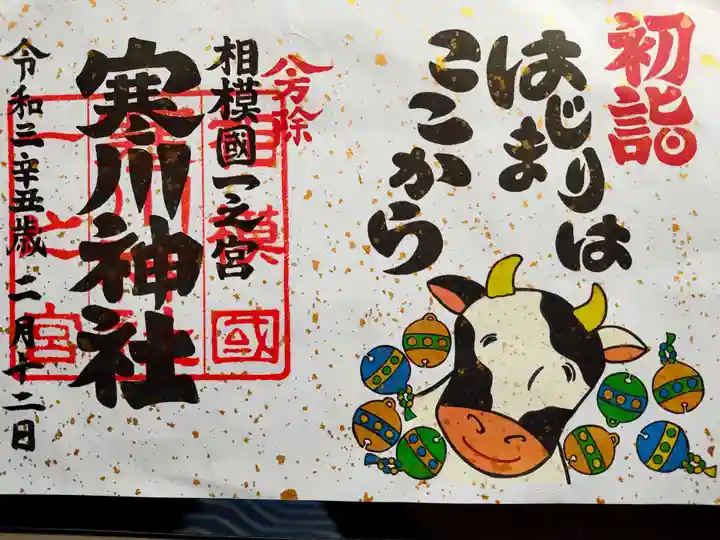 初詣
はじまりは
ここから
八方除
相模國一之宮
寒川神社
令和三辛丑歳 二月十二日
相模國
一之宮